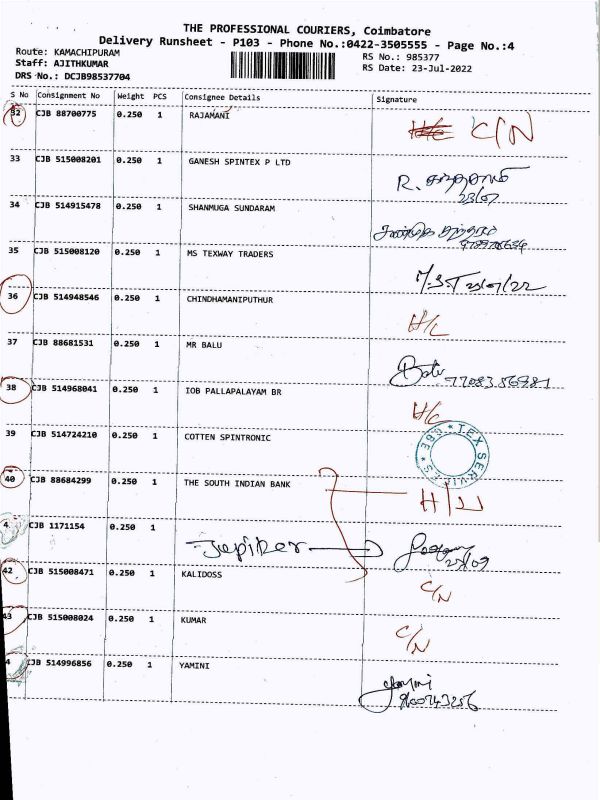 THE PROFESSIONAL COURIERS, Coimbatore
Delivery Runsheet - P103 - Phone No.:0422-3505555 - Page No.:4
Route: KAMACHIPURAM RS No.: 985377
Staff: AJITHKUMAR RS Date: 23-Jul-2022
DRS No.: DCJB98537704
S No Consignment No Weight PCS Consignee Details Signature
32 CJB 88700775 0.250 1 RAJAMANI C/N
33 CJB 515008201 0.250 1 GANESH SPINTEX P LTD R.
34 CJB 514915478 0.250 1 SHANMUGA SUNDARAM
35 CJB 515008120 0.250 1 MS TEXWAY TRADERS
36 CJB 514948546 0.250 1 CHINDHAMANIPUTHUR H/C
37 CJB 88681531 0.250 1 MR BALU Balu
38 CJB 514968041 0.250 1 IOB PALLAPALAYAM BR H/C
39 CJB 514724210 0.250 1 COTTEN SPINTRONIC
40 CJB 88684299 0.250 1 THE SOUTH INDIAN BANK
4 CJB 1171154 0.250 1 Jupiter
42 CJB 515008471 0.250 1 KALIDOSS C/N
43 CJB 515008024 0.250 1 KUMAR C/N
4 CJB 514996856 0.250 1 YAMINI Yamini
9600743256